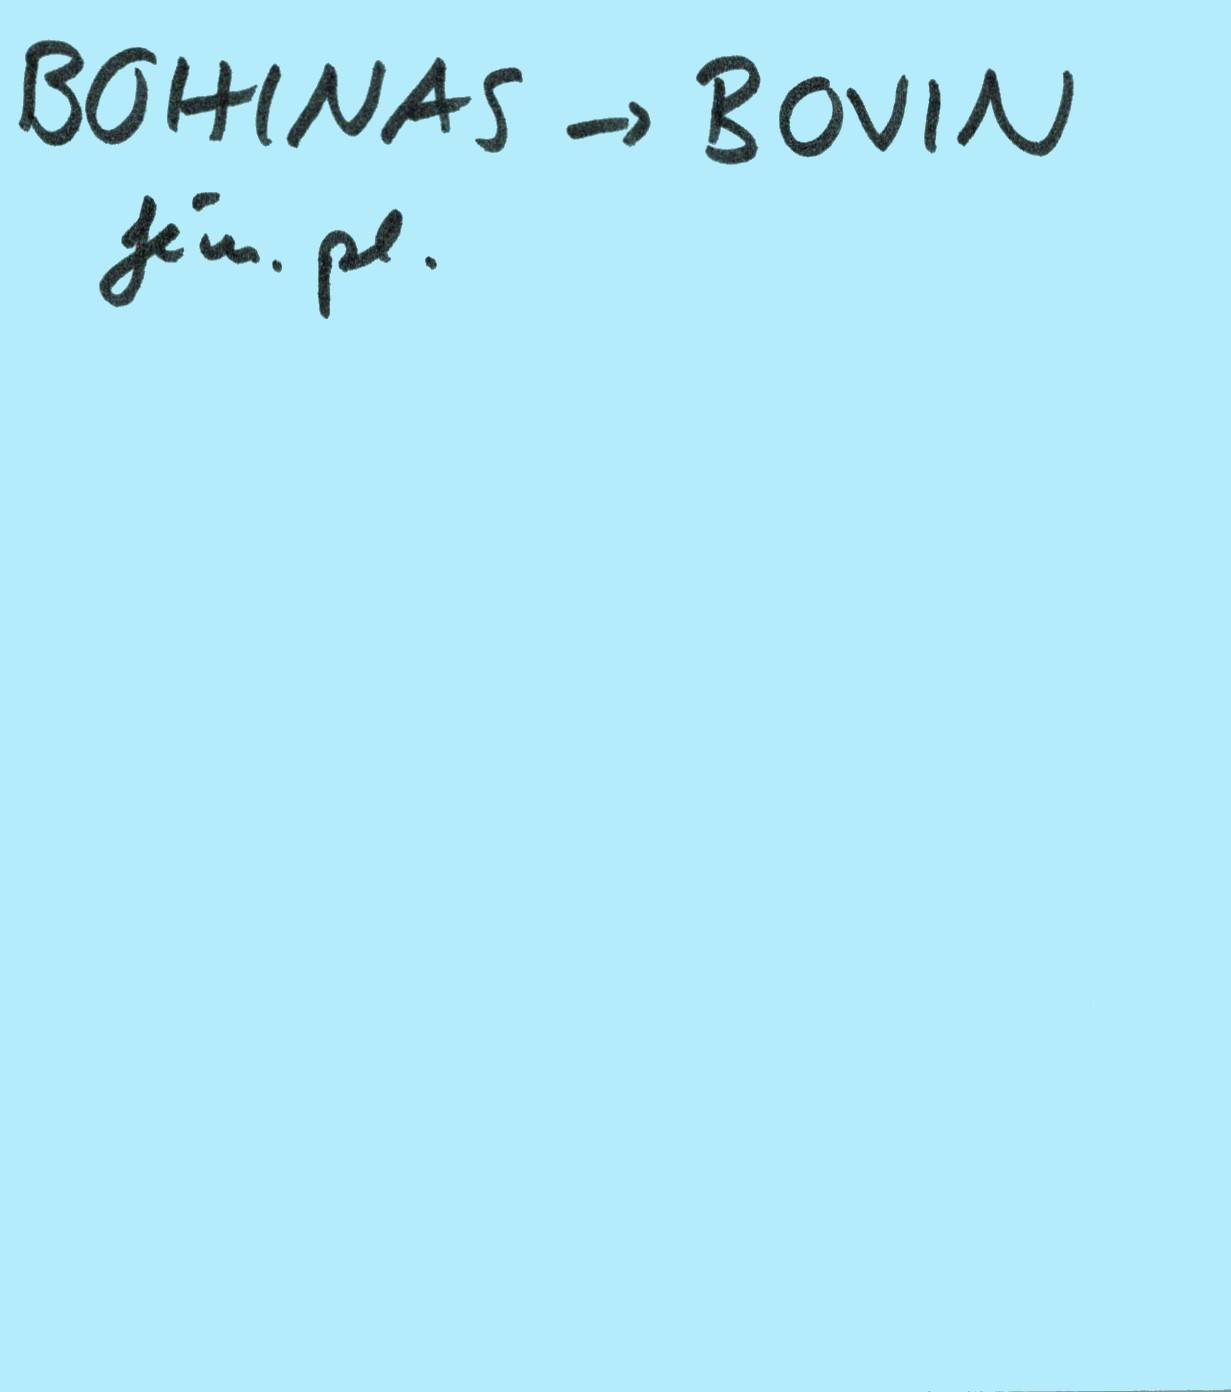 BOHINAS → BOVIN
fém. pl.